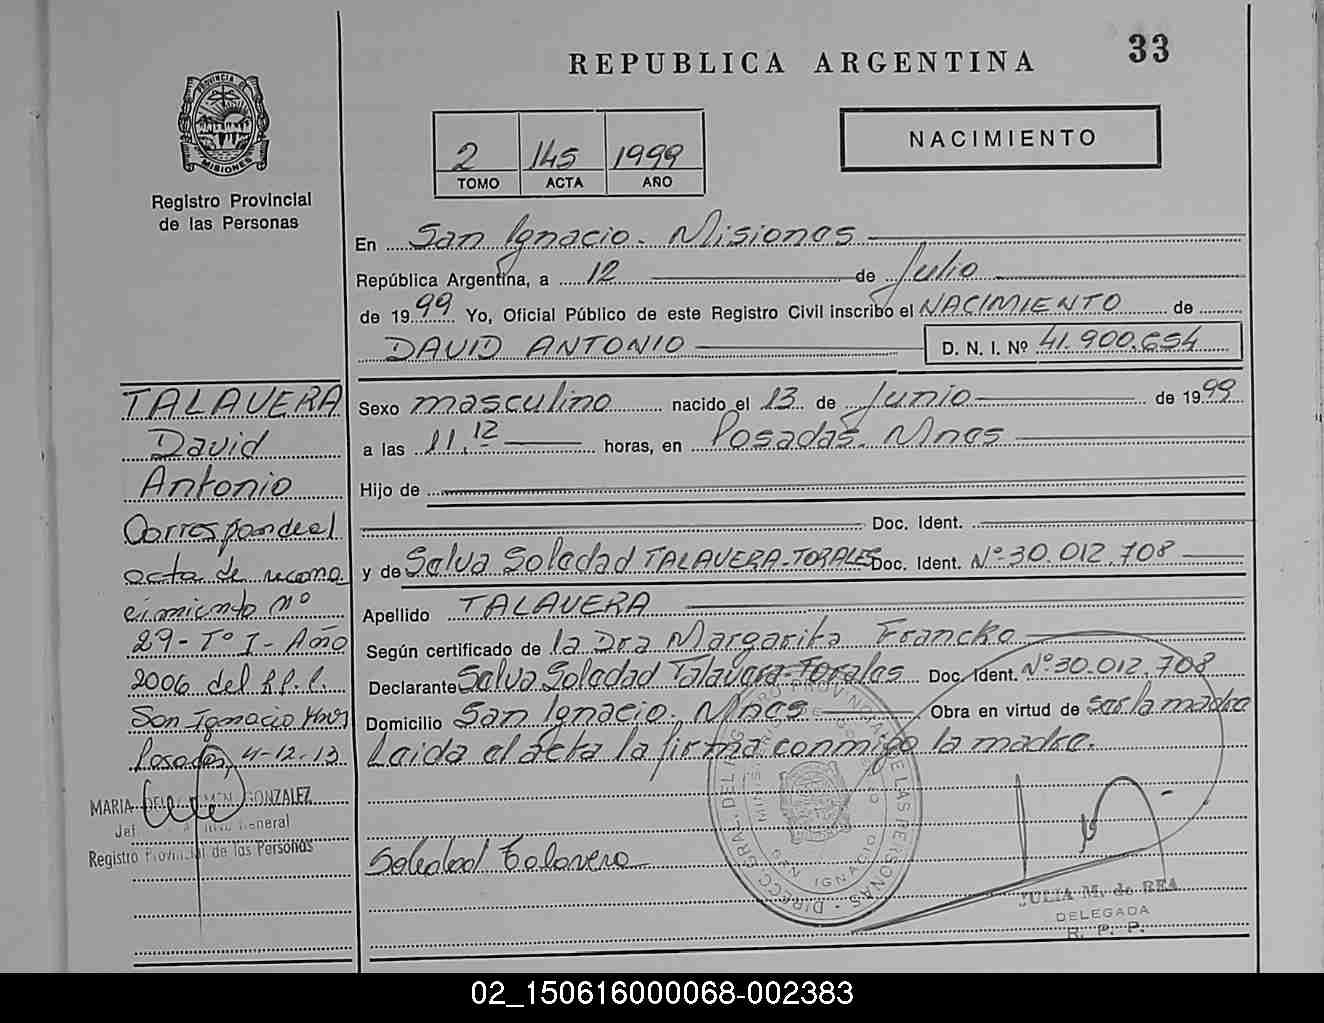 REPUBLICA ARGENTINA
33
PROVINCIA DE
MISIONES
Registro Provincial
de las Personas
2 145 1999
TOMO ACTA AÑO
NACIMIENTO
En San Ignacio. Misiones
República Argentina, a 12 de Julio
de 1999 Yo, Oficial Público de este Registro Civil inscribo el NACIMIENTO de
DAVID ANTONIO D. N. I. Nº 41.900.654
Sexo masculino nacido el 13 de Junio de 1999
a las 11,12 horas, en Posadas. Mnes
Hijo de
Doc. Ident.
y de Salva Soledad TALAVERA-TORALES Doc. Ident. Nº 30.012.708
Apellido TALAVERA
Según certificado de la Dra Margarita
Declarante Salva Soledad Talavera-Torales Doc. Ident. Nº 30.012.708
Domicilio San Ignacio. Mnes Obra en virtud de ser la madre
Leida el acta la firma conmigo la madre.
Soledad Talavera
JULIA M. de REA
DELEGADA
R. P. P.
TALAVERA
David
Antonio
Corresponde al
acta de recono
cimiento nº
29-Tº I-Año
2006 del R.P.P.
San Ignacio Mnes
Posadas, 4-12-13
MARIA DEL CARMEN GONZALEZ
General
Registro Provincial de las Personas
02_150616000068-002383